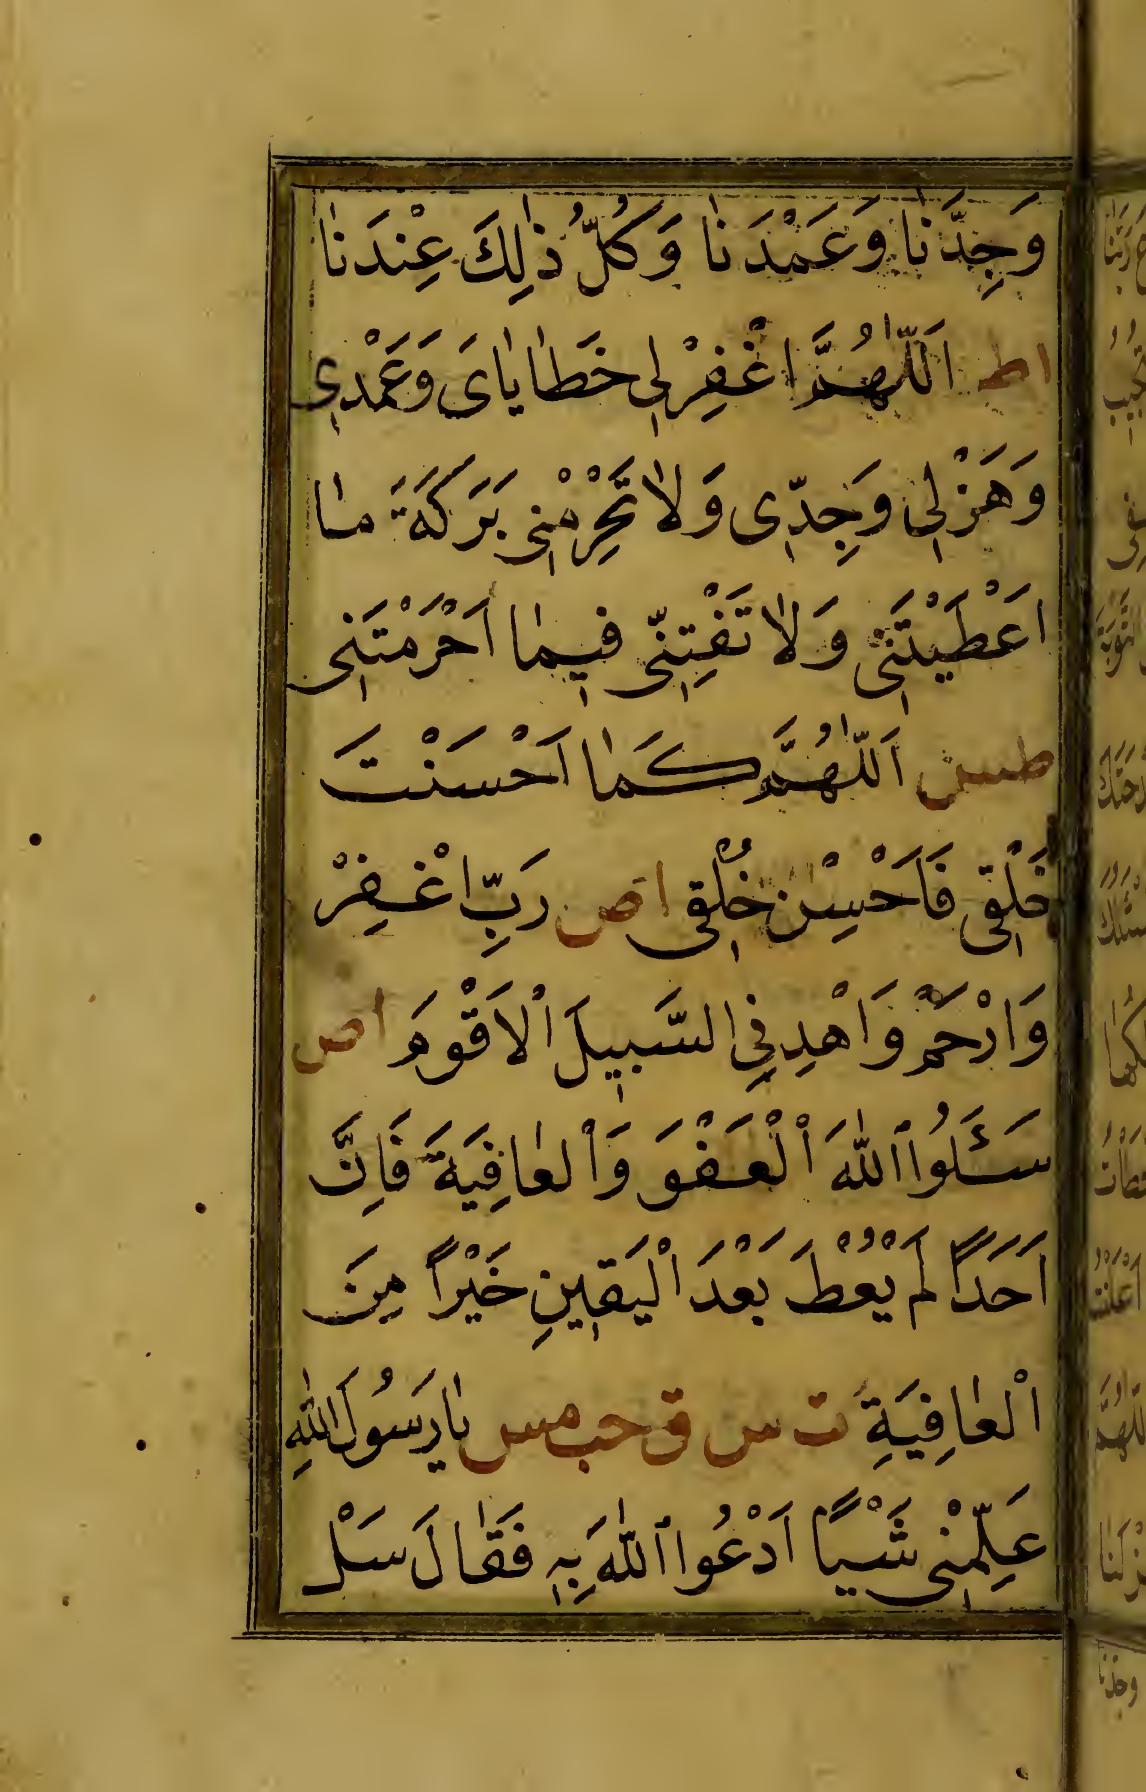 وَجِدَّنَا وَعَمْدَنَا وَكُلُّ ذٰلِكَ عِنْدَنَا
اط اَللّٰهُمَّ اغْفِرْ لِي خَطَايَايَ وَعَمْدِي
وَهَزْلِي وَجِدِّي وَلَا تَحْرِمْنِي بَرَكَةَ مَا
اَعْطَيْتَنِي وَلَا تَفْتِنِّي فِيمَا اَحْرَمْتَنِي
طس اَللّٰهُمَّ كَمَا اَحْسَنْتَ
خَلْقِي فَاَحْسِنْ خُلْقِي اص رَبِّ اغْفِرْ
وَارْحَمْ وَاهْدِنِي السَّبِيلَ الْاَقْوَمَ اص
سَئَلُوا اللّٰهَ الْعَفْوَ وَالْعَافِيَةَ فَاِنَّ
اَحَدًا لَمْ يُعْطَ بَعْدَ الْيَقِينِ خَيْرًا مِنَ
الْعَافِيَةِ ت س ق حب مس يَا رَسُولَ اللّٰهِ
عَلِّمْنِي شَيْئًا اَدْعُوا اللّٰهَ بِهِ فَقَالَ سَلْ